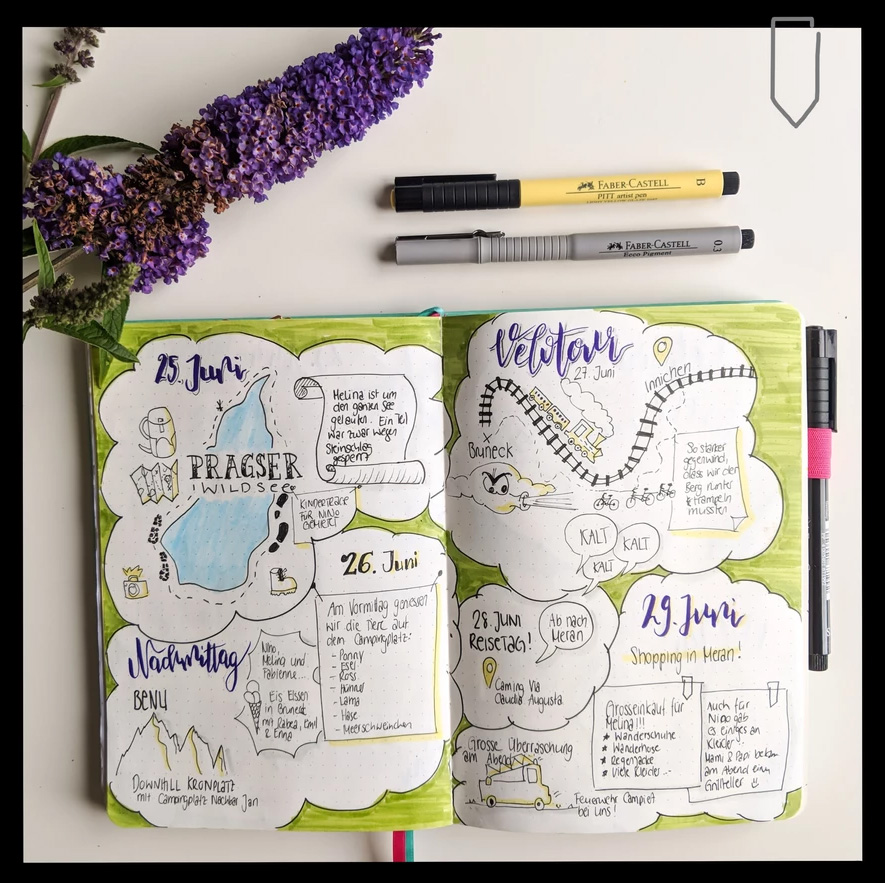 FABER-CASTELL
PITT artist pen
B
FABER-CASTELL
Ecco Pigment
0.3
25. Juni
Melina ist um
den ganzen See
gelaufen. Ein Teil
war zwar wegen
Steinschlag
gesperrt
PRAGSER
WILDSEE
KINDERTRAGE
FÜR NINO
26. Juni
Am Vormittag geniessen
wir die Tiere auf
dem Campingplatz:
- Ponny
- Esel
- Ross
- Hühner
- Lama
- Hase
- Meerschweinchen
Nachmittag
BENU
DOWNHILL KRONPLATZ
mit Campingplatz Nachbar Jan
Nino,
Melina und
Fabienne...
Eis Essen
in Bruneck
mit Rabea, Emil
& Enna
Velotour
27. Juni
Innichen
Bruneck
So starker
gegenwind,
dass wir den
Berg runter
trampeln
mussten
KALT
KALT
KALT
28. JUNI
REISETAG!
Ab nach
Meran
Caming Via
Claudia Augusta
29. Juni
Shopping in Meran!
Grosseinkauf für
Melina!!!
* Wanderschuhe
* Wanderhose
* Regenjacke
* Viele Kleider...
Auch für
Nino gab
es einiges an
Kleider...
Mami & Papi
am Abend einen
Grillteller
Grosse Überraschung
am Abend
Feuerwehr Campiert
bei uns!